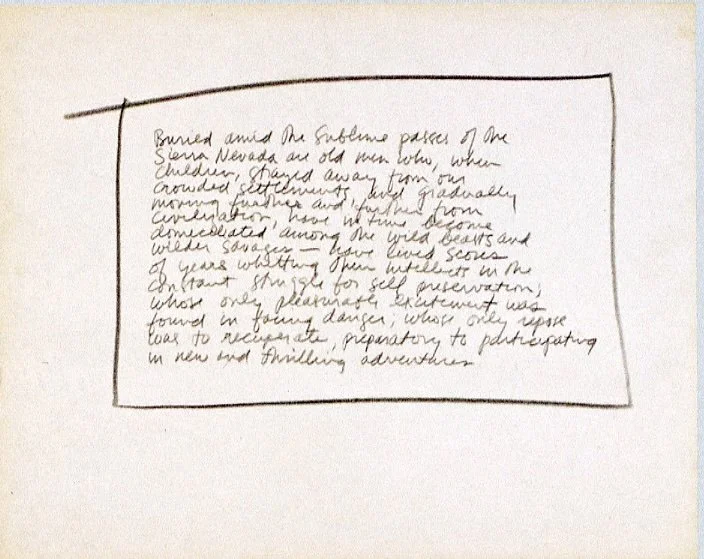 Buried amid the Sublime passes of the
Sierra Nevada are old men who, when
children, strayed away from our
crowded settlements, and gradually
moving further and further from
civilization, have in time become
domiciliated among the wild beasts and
wilder savages — have lived scores
of years whetting their intellects in the
constant struggle for self preservation;
whose only pleasurable excitement was
found in facing danger; whose only repose
was to recuperate, preparatory to participating
in new and thrilling adventures